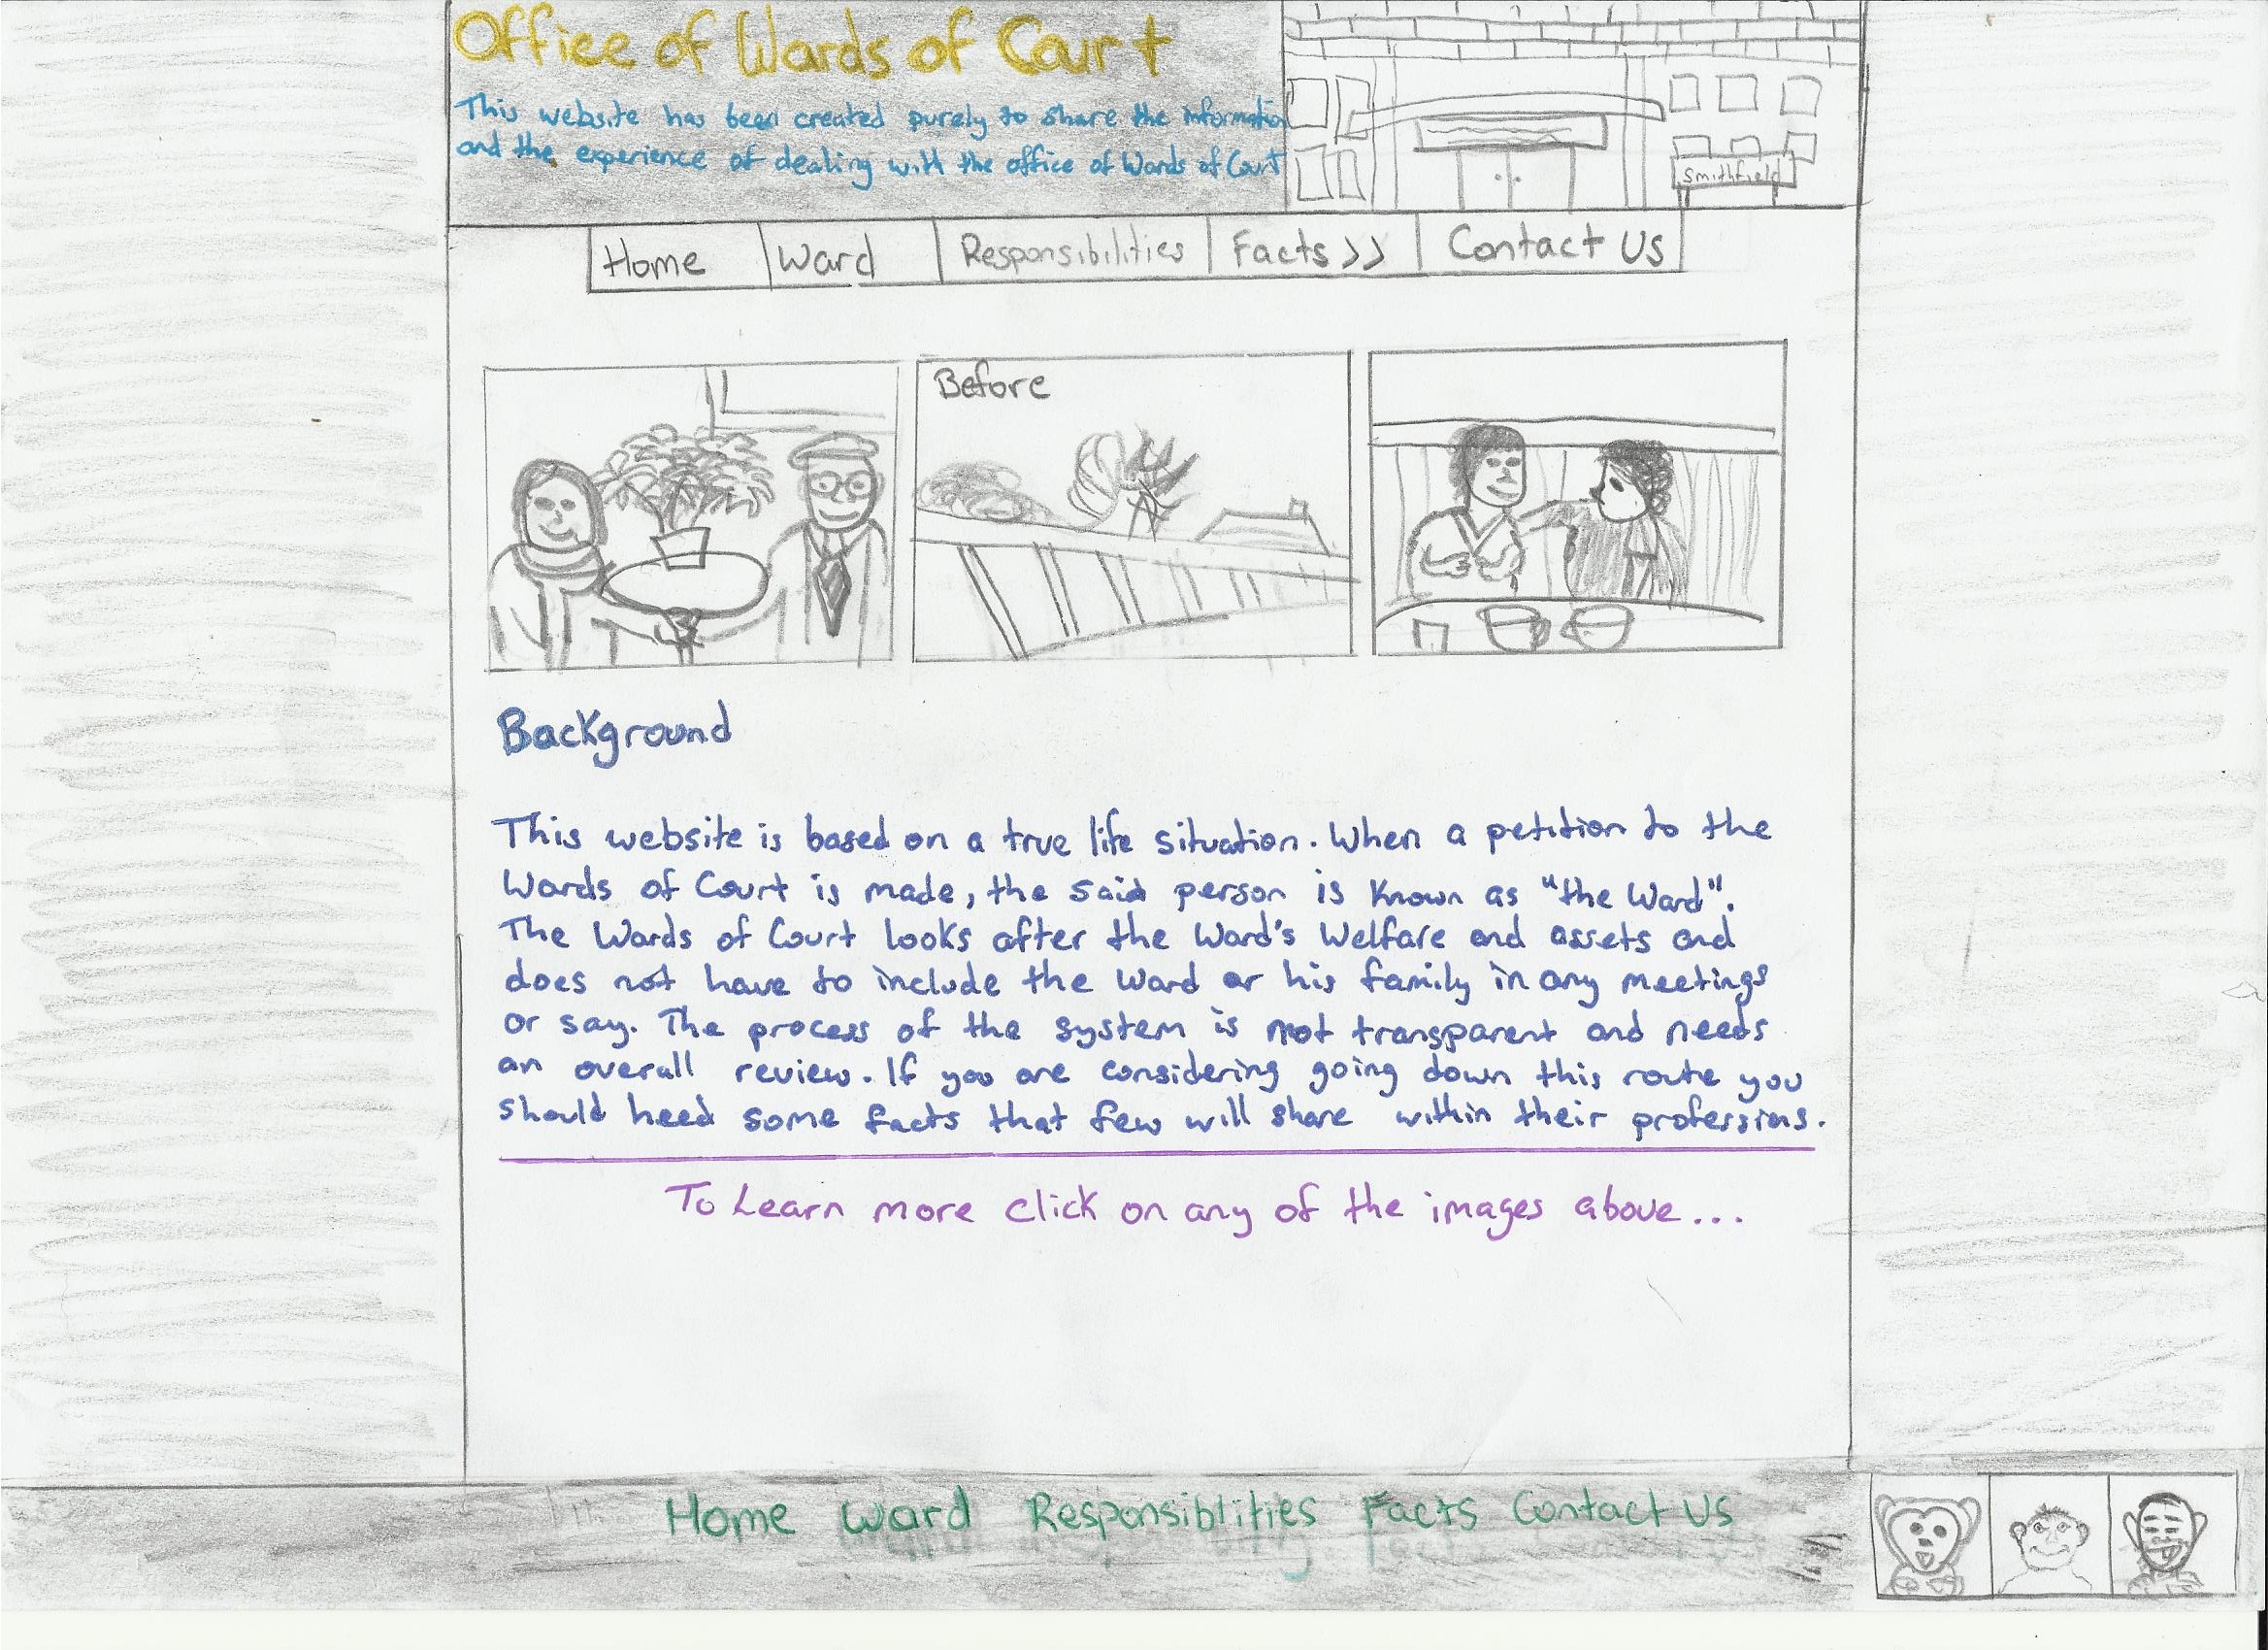 Office of Wards of Court
This website has been created purely to share the information
and the experience of dealing with the office of Wards of Court
Smithfield
Home Ward Responsibilities Facts >> Contact Us
Before
Background
This website is based on a true life situation. When a petition to the
Wards of Court is made, the said person is known as "the Ward".
The Wards of Court looks after the Ward's Welfare and assets and
does not have to include the Ward or his family in any meetings
or say. The process of the system is not transparent and needs
an overall review. If you are considering going down this route you
should heed some facts that few will share within their professions.
To Learn more click on any of the images above...
Home Ward Responsiblities Facts Contact Us